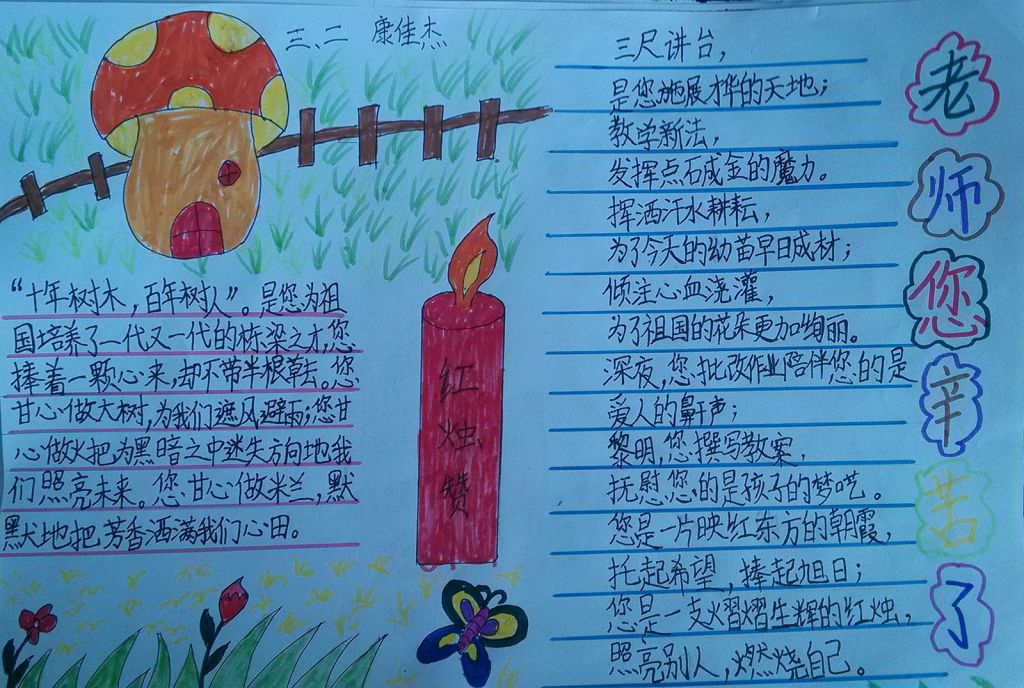 三、二 康佳杰
“十年树木，百年树人”。是您为祖
国培养了一代又一代的栋梁之才,您
捧着一颗心来,却不带半根草去。您
甘心做大树,为我们遮风避雨;您甘
心做火把为黑暗之中迷失方向地我
们照亮未来。您甘心做米兰,默
默地把芳香洒满我们心田。
红烛赞
三尺讲台，
是您施展才华的天地；
教学新法，
发挥点石成金的魔力。
挥洒汗水耕耘，
为了今天的幼苗早日成材；
倾注心血浇灌，
为了祖国的花朵更加绚丽。
深夜,您批改作业陪伴您的是
爱人的鼾声；
黎明,您撰写教案，
抚慰您的是孩子的梦呓。
您是一片映红东方的朝霞，
托起希望，捧起旭日；
您是一支熠熠生辉的红烛，
照亮别人，燃烧自己。
老师您辛苦了